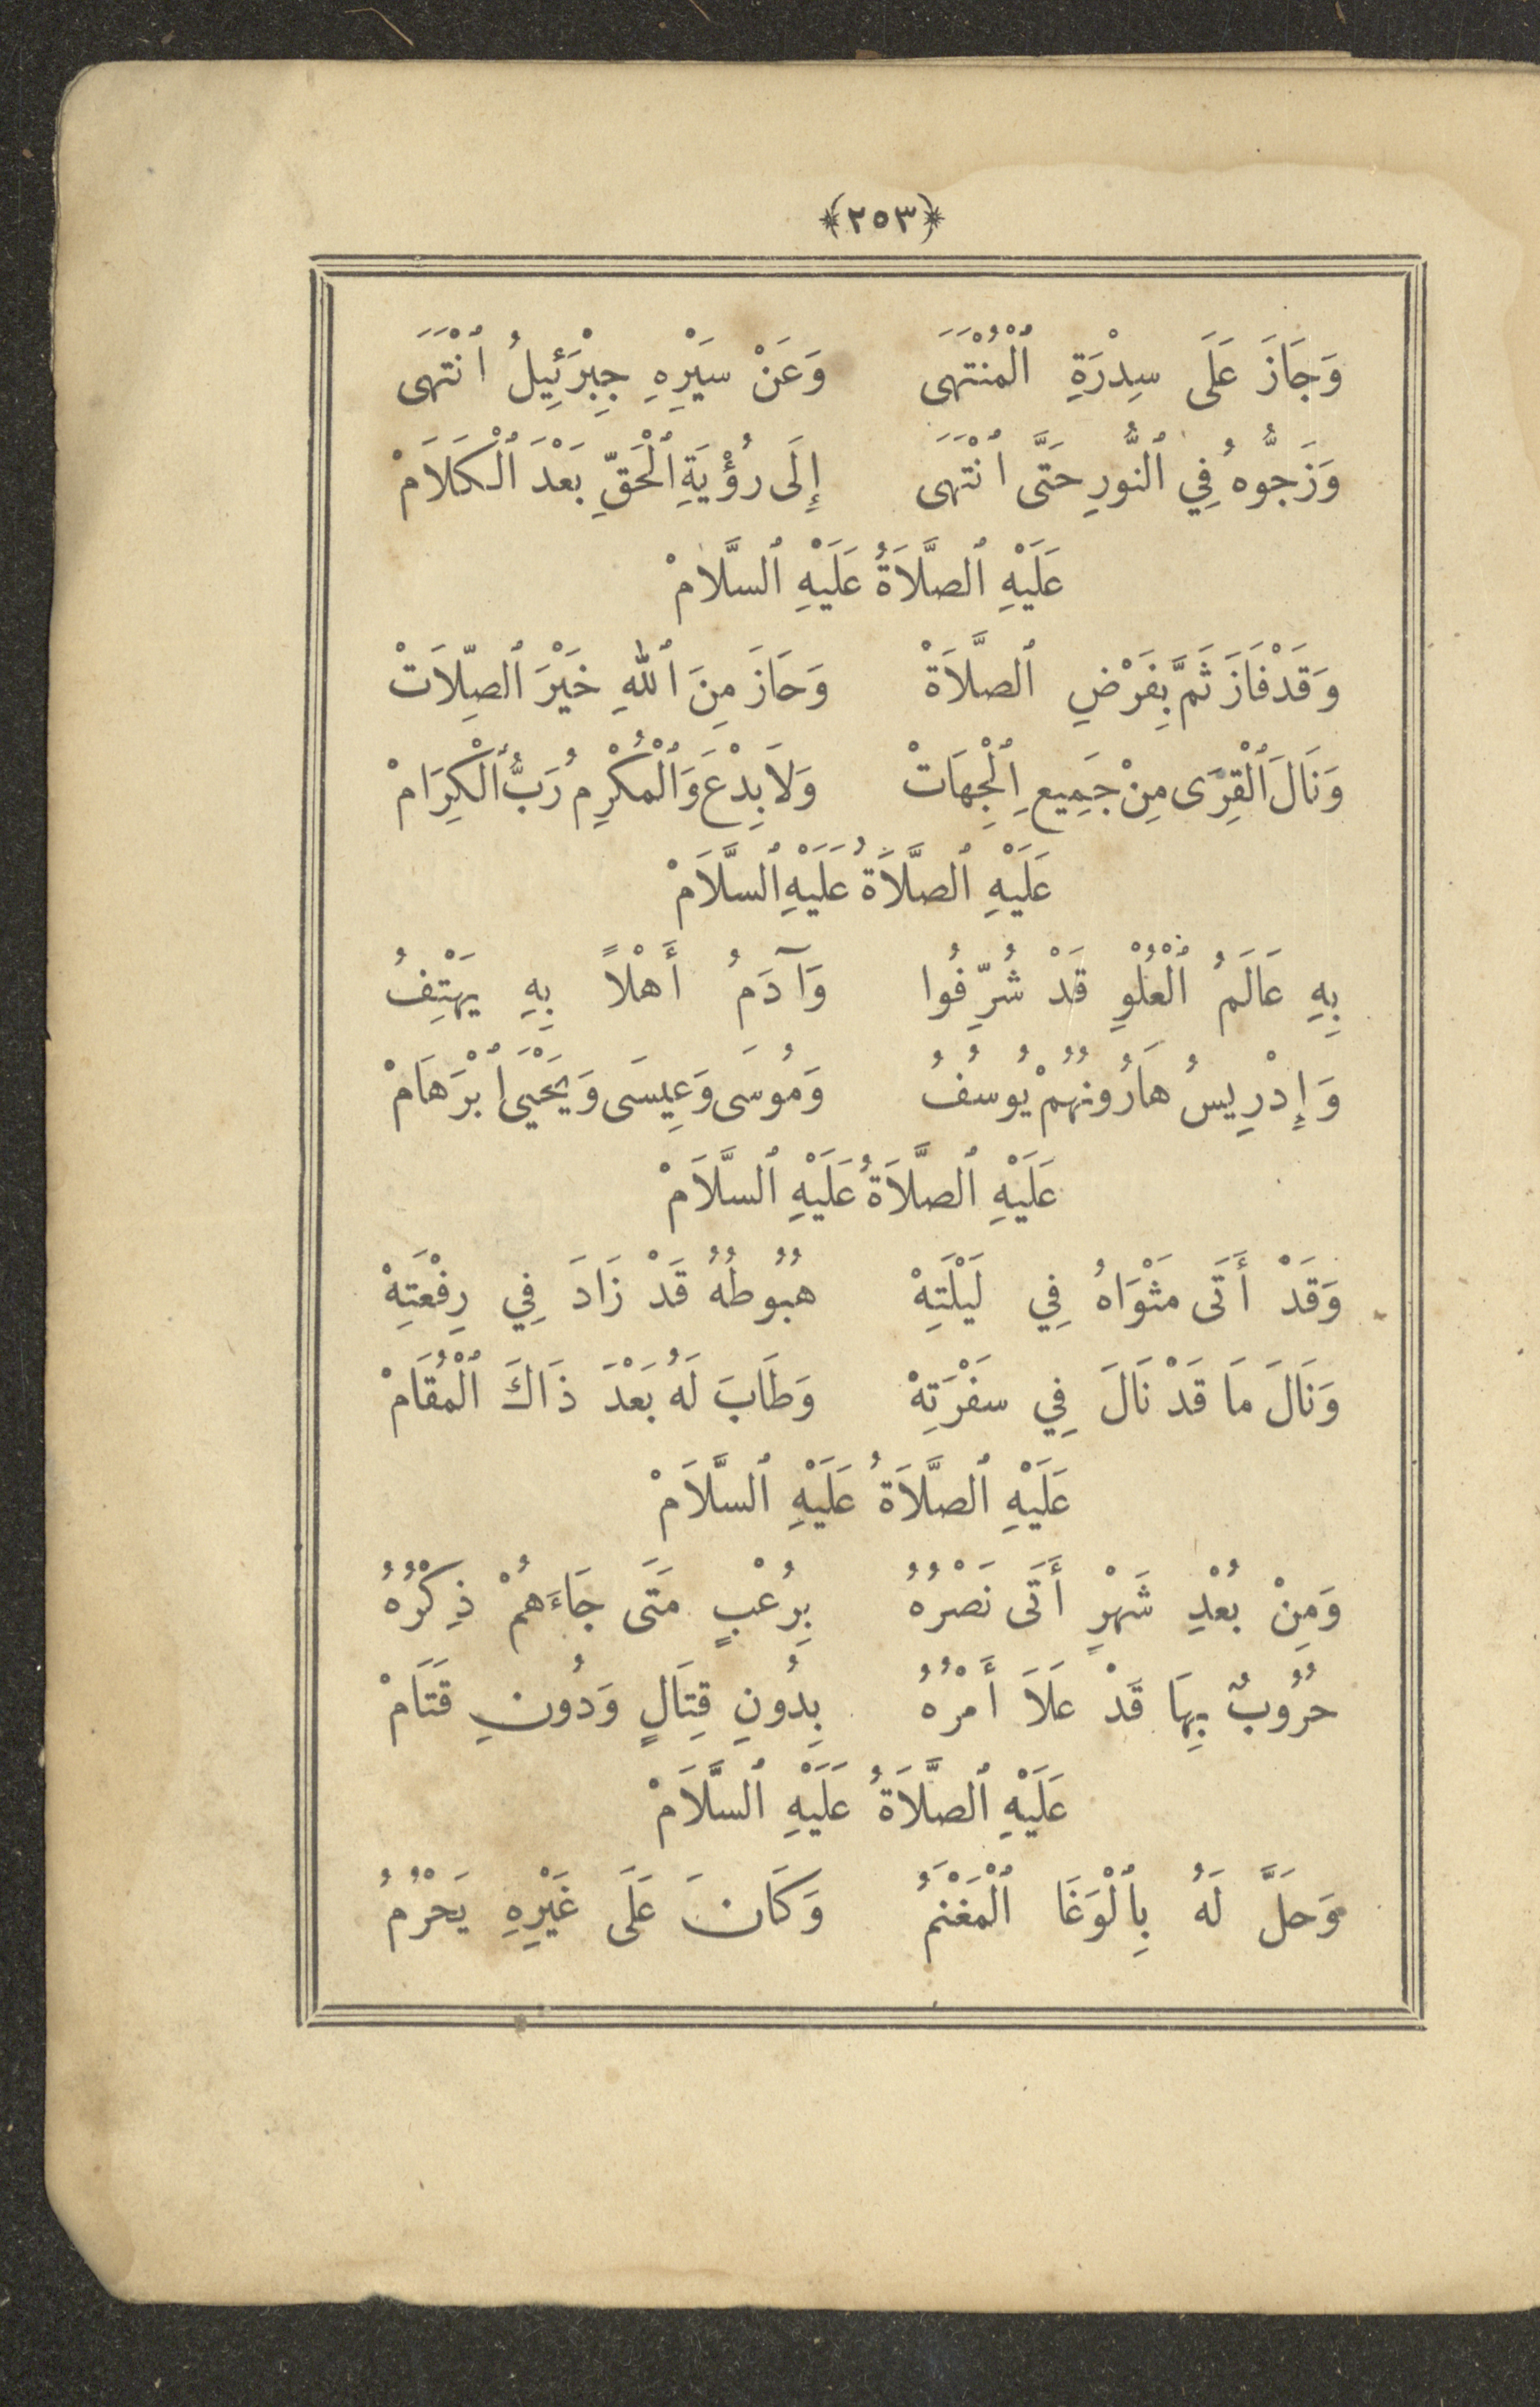 ﴿٢٥٣﴾
وَجَازَ عَلَى سِدْرَةِ ٱلْمُنْتَهَى وَعَنْ سَيْرِهِ جِبْرَئِيلُ ٱنْتَهَى
وَزَجُّوهُ فِي ٱلنُّورِ حَتَّى ٱنْتَهَى إِلَى رُؤْيَةِ ٱلْحَقِّ بَعْدَ ٱلْكَلَامْ
عَلَيْهِ ٱلصَّلَاةُ عَلَيْهِ ٱلسَّلَامْ
وَقَدْ فَازَ ثَمَّ بِفَرْضِ ٱلصَّلَاةْ وَحَازَ مِنَ ٱللهِ خَيْرَ ٱلصِّلَاتْ
وَنَالَ ٱلْقِرَى مِنْ جَمِيعِ ٱلْجِهَاتْ وَلَا بِدْعَ وَٱلْمُكْرِمُ رَبُّ ٱلْكِرَامْ
عَلَيْهِ ٱلصَّلَاةُ عَلَيْهِ ٱلسَّلَامْ
بِهِ عَالَمُ ٱلْعُلْوِ قَدْ شُرِّفُوا وَآدَمُ أَهْلًا بِهِ يَهْتِفُ
وَإِدْرِيسُ هَارُونُهُمْ يُوسُفُ وَمُوسَى وَعِيسَى وَيَحْيَى ٱبْرَهَامْ
عَلَيْهِ ٱلصَّلَاةُ عَلَيْهِ ٱلسَّلَامْ
وَقَدْ أَتَى مَثْوَاهُ فِي لَيْلَتِهْ هُبُوطُهُ قَدْ زَادَ فِي رِفْعَتِهْ
وَنَالَ مَا قَدْ نَالَ فِي سَفْرَتِهْ وَطَابَ لَهُ بَعْدَ ذَاكَ ٱلْمُقَامْ
عَلَيْهِ ٱلصَّلَاةُ عَلَيْهِ ٱلسَّلَامْ
وَمِنْ بُعْدِ شَهْرٍ أَتَى نَصْرُهُ بِرُعْبٍ مَتَى جَاءَهُمْ ذِكْرُهُ
حُرُوبٌ بِهَا قَدْ عَلَا أَمْرُهُ بِدُونِ قِتَالٍ وَدُونِ قَتَامْ
عَلَيْهِ ٱلصَّلَاةُ عَلَيْهِ ٱلسَّلَامْ
وَحَلَّ لَهُ بِٱلْوَغَا ٱلْمَغْنَمُ وَكَانَ عَلَى غَيْرِهِ يَحْرُمُ